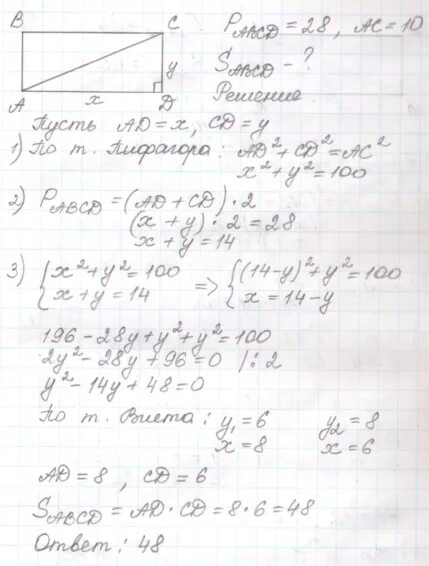 B C P_ABCD = 28, AC = 10
y S_ABCD - ?
A x D Решение.
Пусть AD = x, CD = y
1) По т. Пифагора: AD² + CD² = AC²
x² + y² = 100
2) P_ABCD = (AD + CD) · 2
(x + y) · 2 = 28
x + y = 14
3) { x² + y² = 100 => { (14 - y)² + y² = 100
{ x + y = 14 { x = 14 - y
196 - 28y + y² + y² = 100
2y² - 28y + 96 = 0 /: 2
y² - 14y + 48 = 0
По т. Виета: y₁ = 6 y₂ = 8
x = 8 x = 6
AD = 8, CD = 6
S_ABCD = AD · CD = 8 · 6 = 48
Ответ: 48